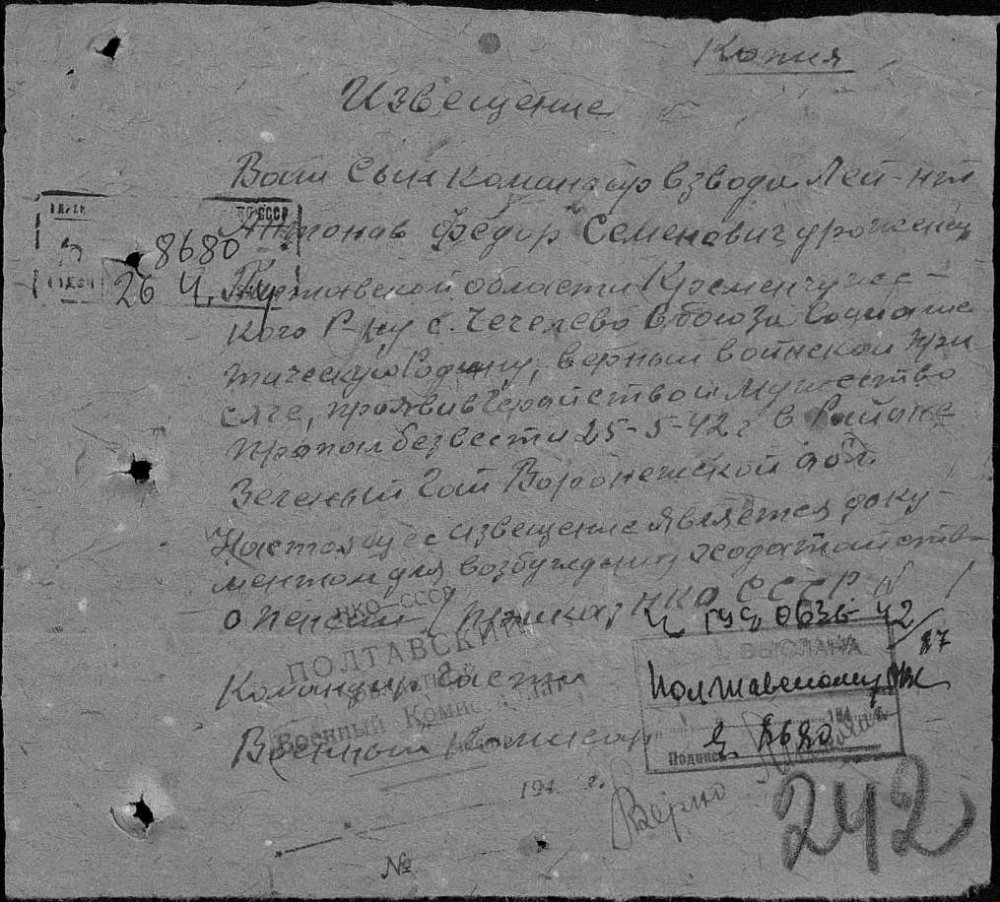 Копия
Извещение
Ваш Сын командир взвода Лей-нт
Антонав Федор Семенович уроженец
8680
26 Ч.
Полтавской области Кременчугс-
кого Р-ну с. Чечелево в боюза Социалис
тическую Родину, верный воинской при
сяге, проявив геройство и мужество
Пропал безвести 25-5-42 г в Районе
Зеленый Гай Воронежской обл.
Настоящее извещение является доку-
ментом для возбуждения ходатайств-
о пенсии (приказ НКО СССР №
НКО-СССР
ПОЛТАВСКИЙ
Военный Комис
Командир Части
Военный комисар
ВЫСЛАНА
Полтавскому
194 г.
Подпись
8680
194 г.
Верно
242
№